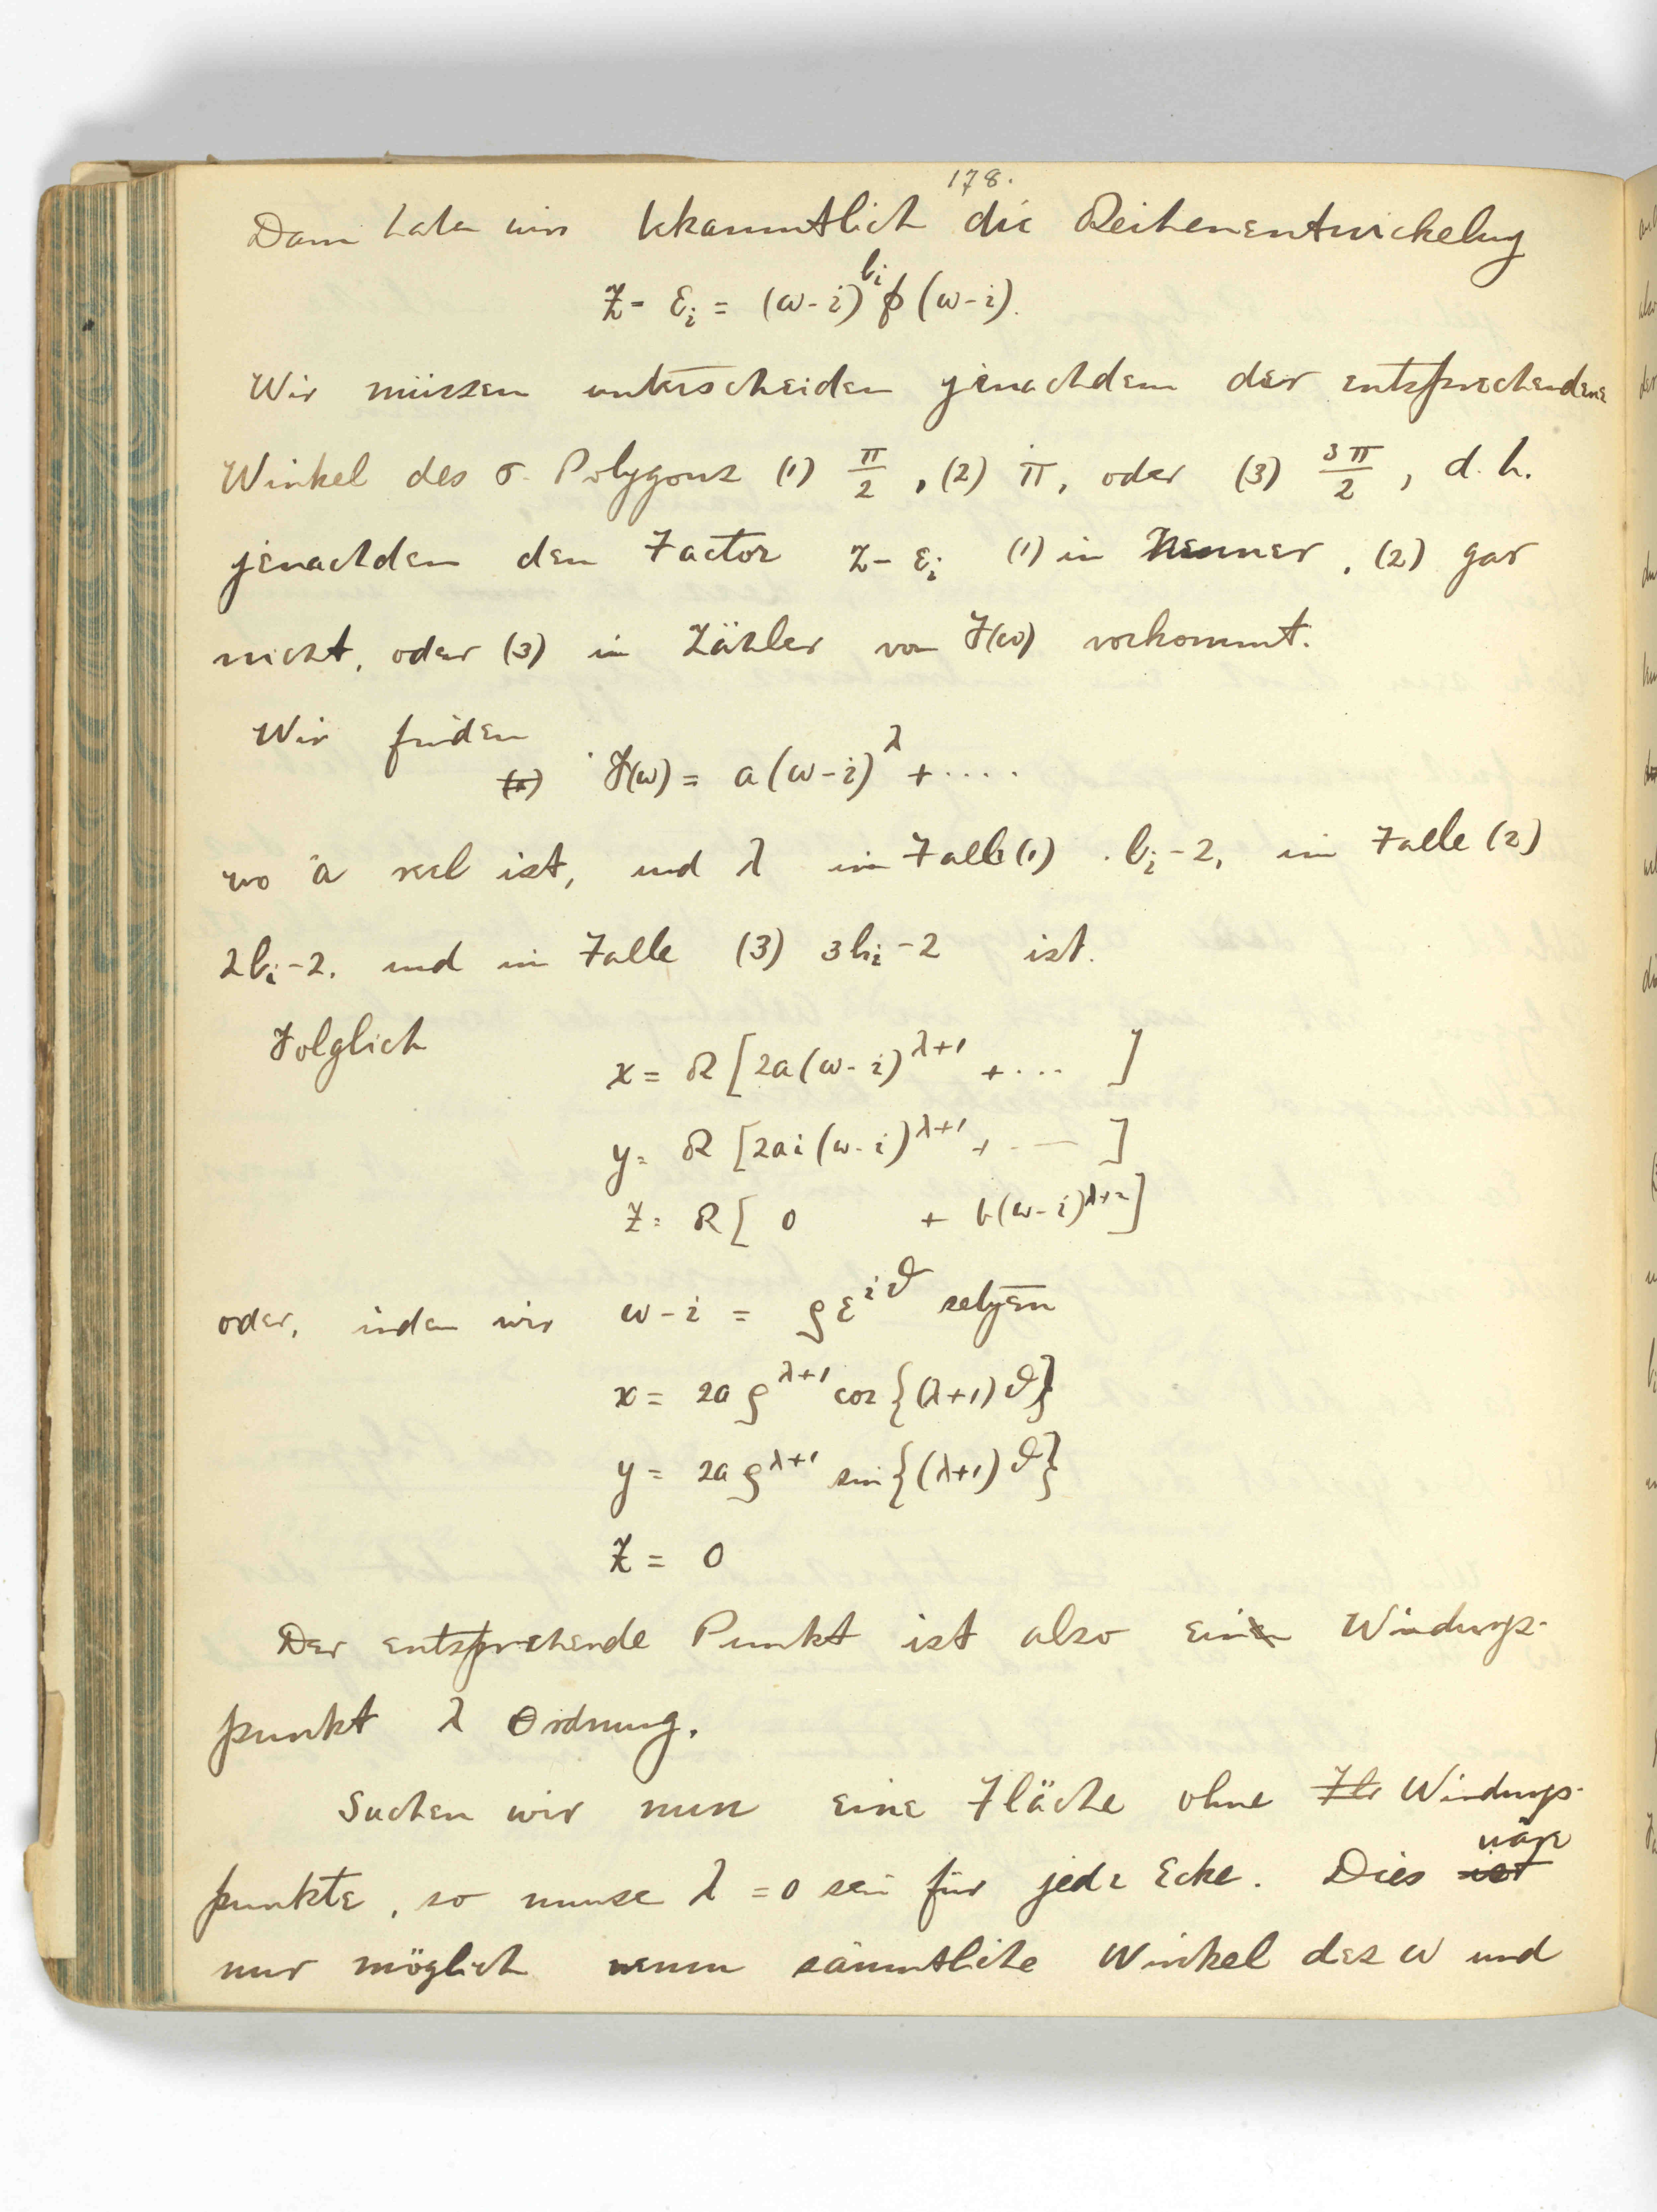 178.
Dann haben wir bekanntlich die Reihenentwickelung
Z - ε_i = (ω-i)^{b_i} p (ω-i).
Wir müssen unterscheiden jenachdem der entsprechende
Winkel des σ. Polygons (1) π/2, (2) π, oder (3) 3π/2, d. h.
jenachdem den Factor Z - ε_i (1) in Nenner, (2) gar
nicht, oder (3) in Zähler von F(ω) vorkommt.
Wir finden
F(ω) = a(ω-i)^λ + ....
wo a reel ist, und λ im Falle (1) b_i-2, im Falle (2)
2b_i-2, und im Falle (3) 3b_i-2 ist.
Folglich
x = R [2a(ω-i)^{λ+1} + ... ]
y = R [2ai(ω-i)^{λ+1} + ... ]
Z = R [ 0 + b(ω-i)^{λ+2}]
oder, indem wir ω-i = ρε^{iϑ} setzen
x = 2aρ^{λ+1} cos {(λ+1)ϑ}
y = 2aρ^{λ+1} sin {(λ+1)ϑ}
Z = 0
Der entsprechende Punkt ist also ein Windungs-
punkt λ Ordnung.
Suchen wir nun eine Fläche ohne Windungs-
punkte, so muss λ = 0 sein für jede Ecke. Dies wäre
nur möglich wenn sämmtliche Winkel des W und